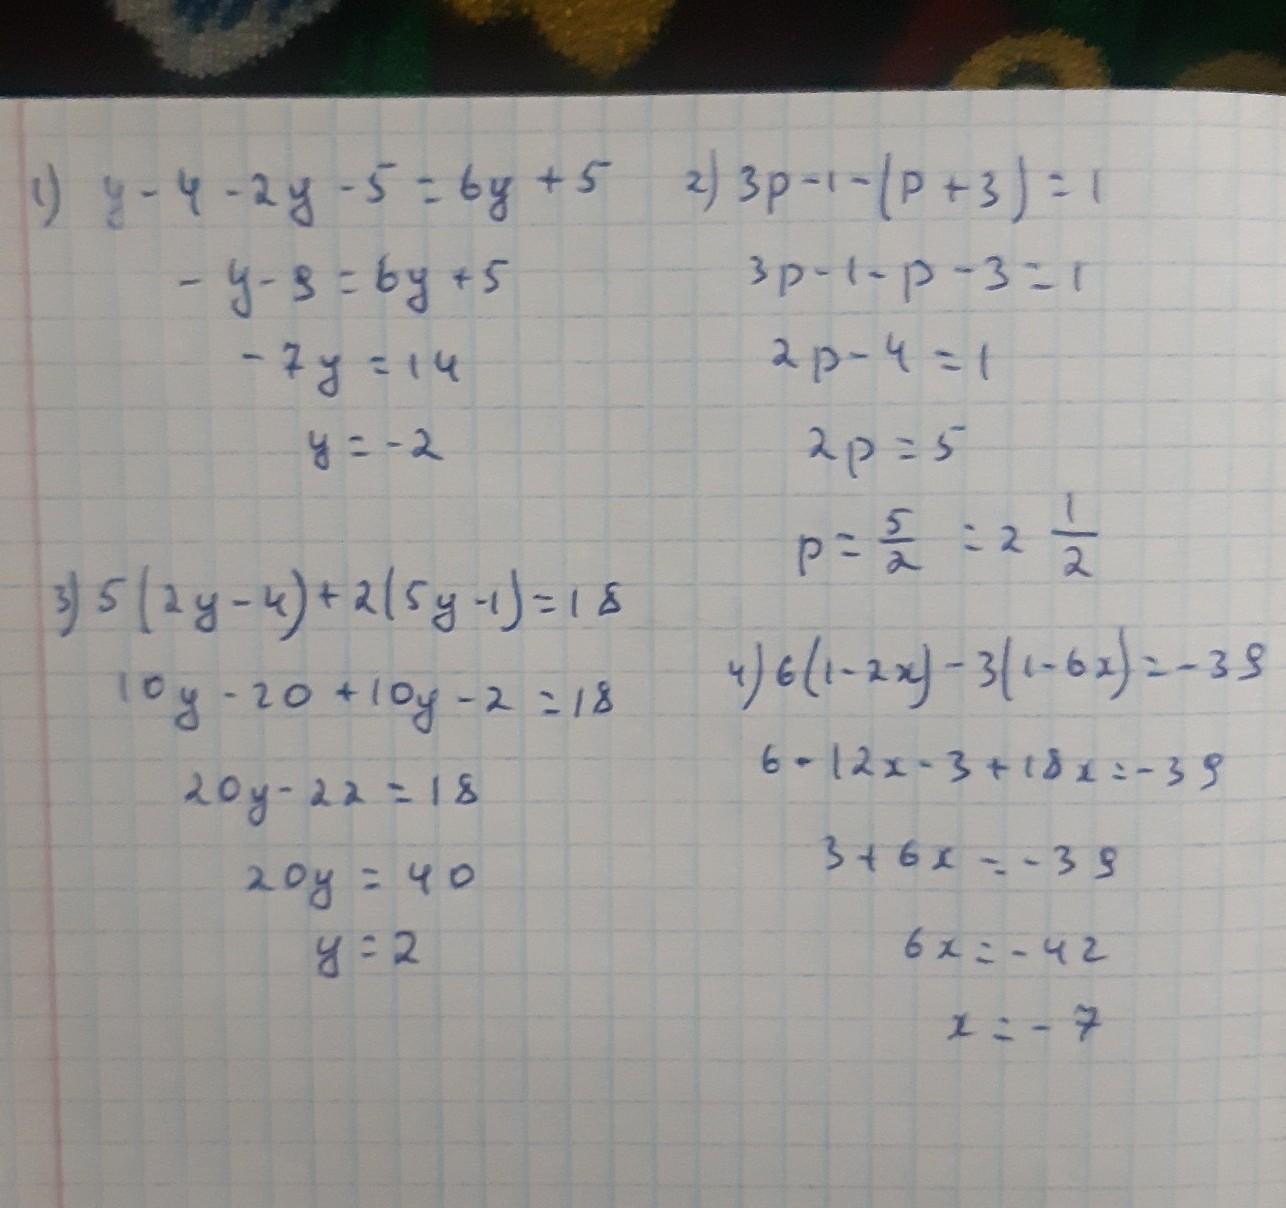 1) y - 4 - 2y - 5 = 6y + 5
- y - 9 = 6y + 5
- 7y = 14
y = -2
2) 3p - 1 - (p + 3) = 1
3p - 1 - p - 3 = 1
2p - 4 = 1
2p = 5
p = 5/2 = 2 1/2
3) 5(2y - 4) + 2(5y - 1) = 18
10y - 20 + 10y - 2 = 18
20y - 22 = 18
20y = 40
y = 2
4) 6(1 - 2x) - 3(1 - 6x) = -39
6 - 12x - 3 + 18x = -39
3 + 6x = -39
6x = -42
x = -7